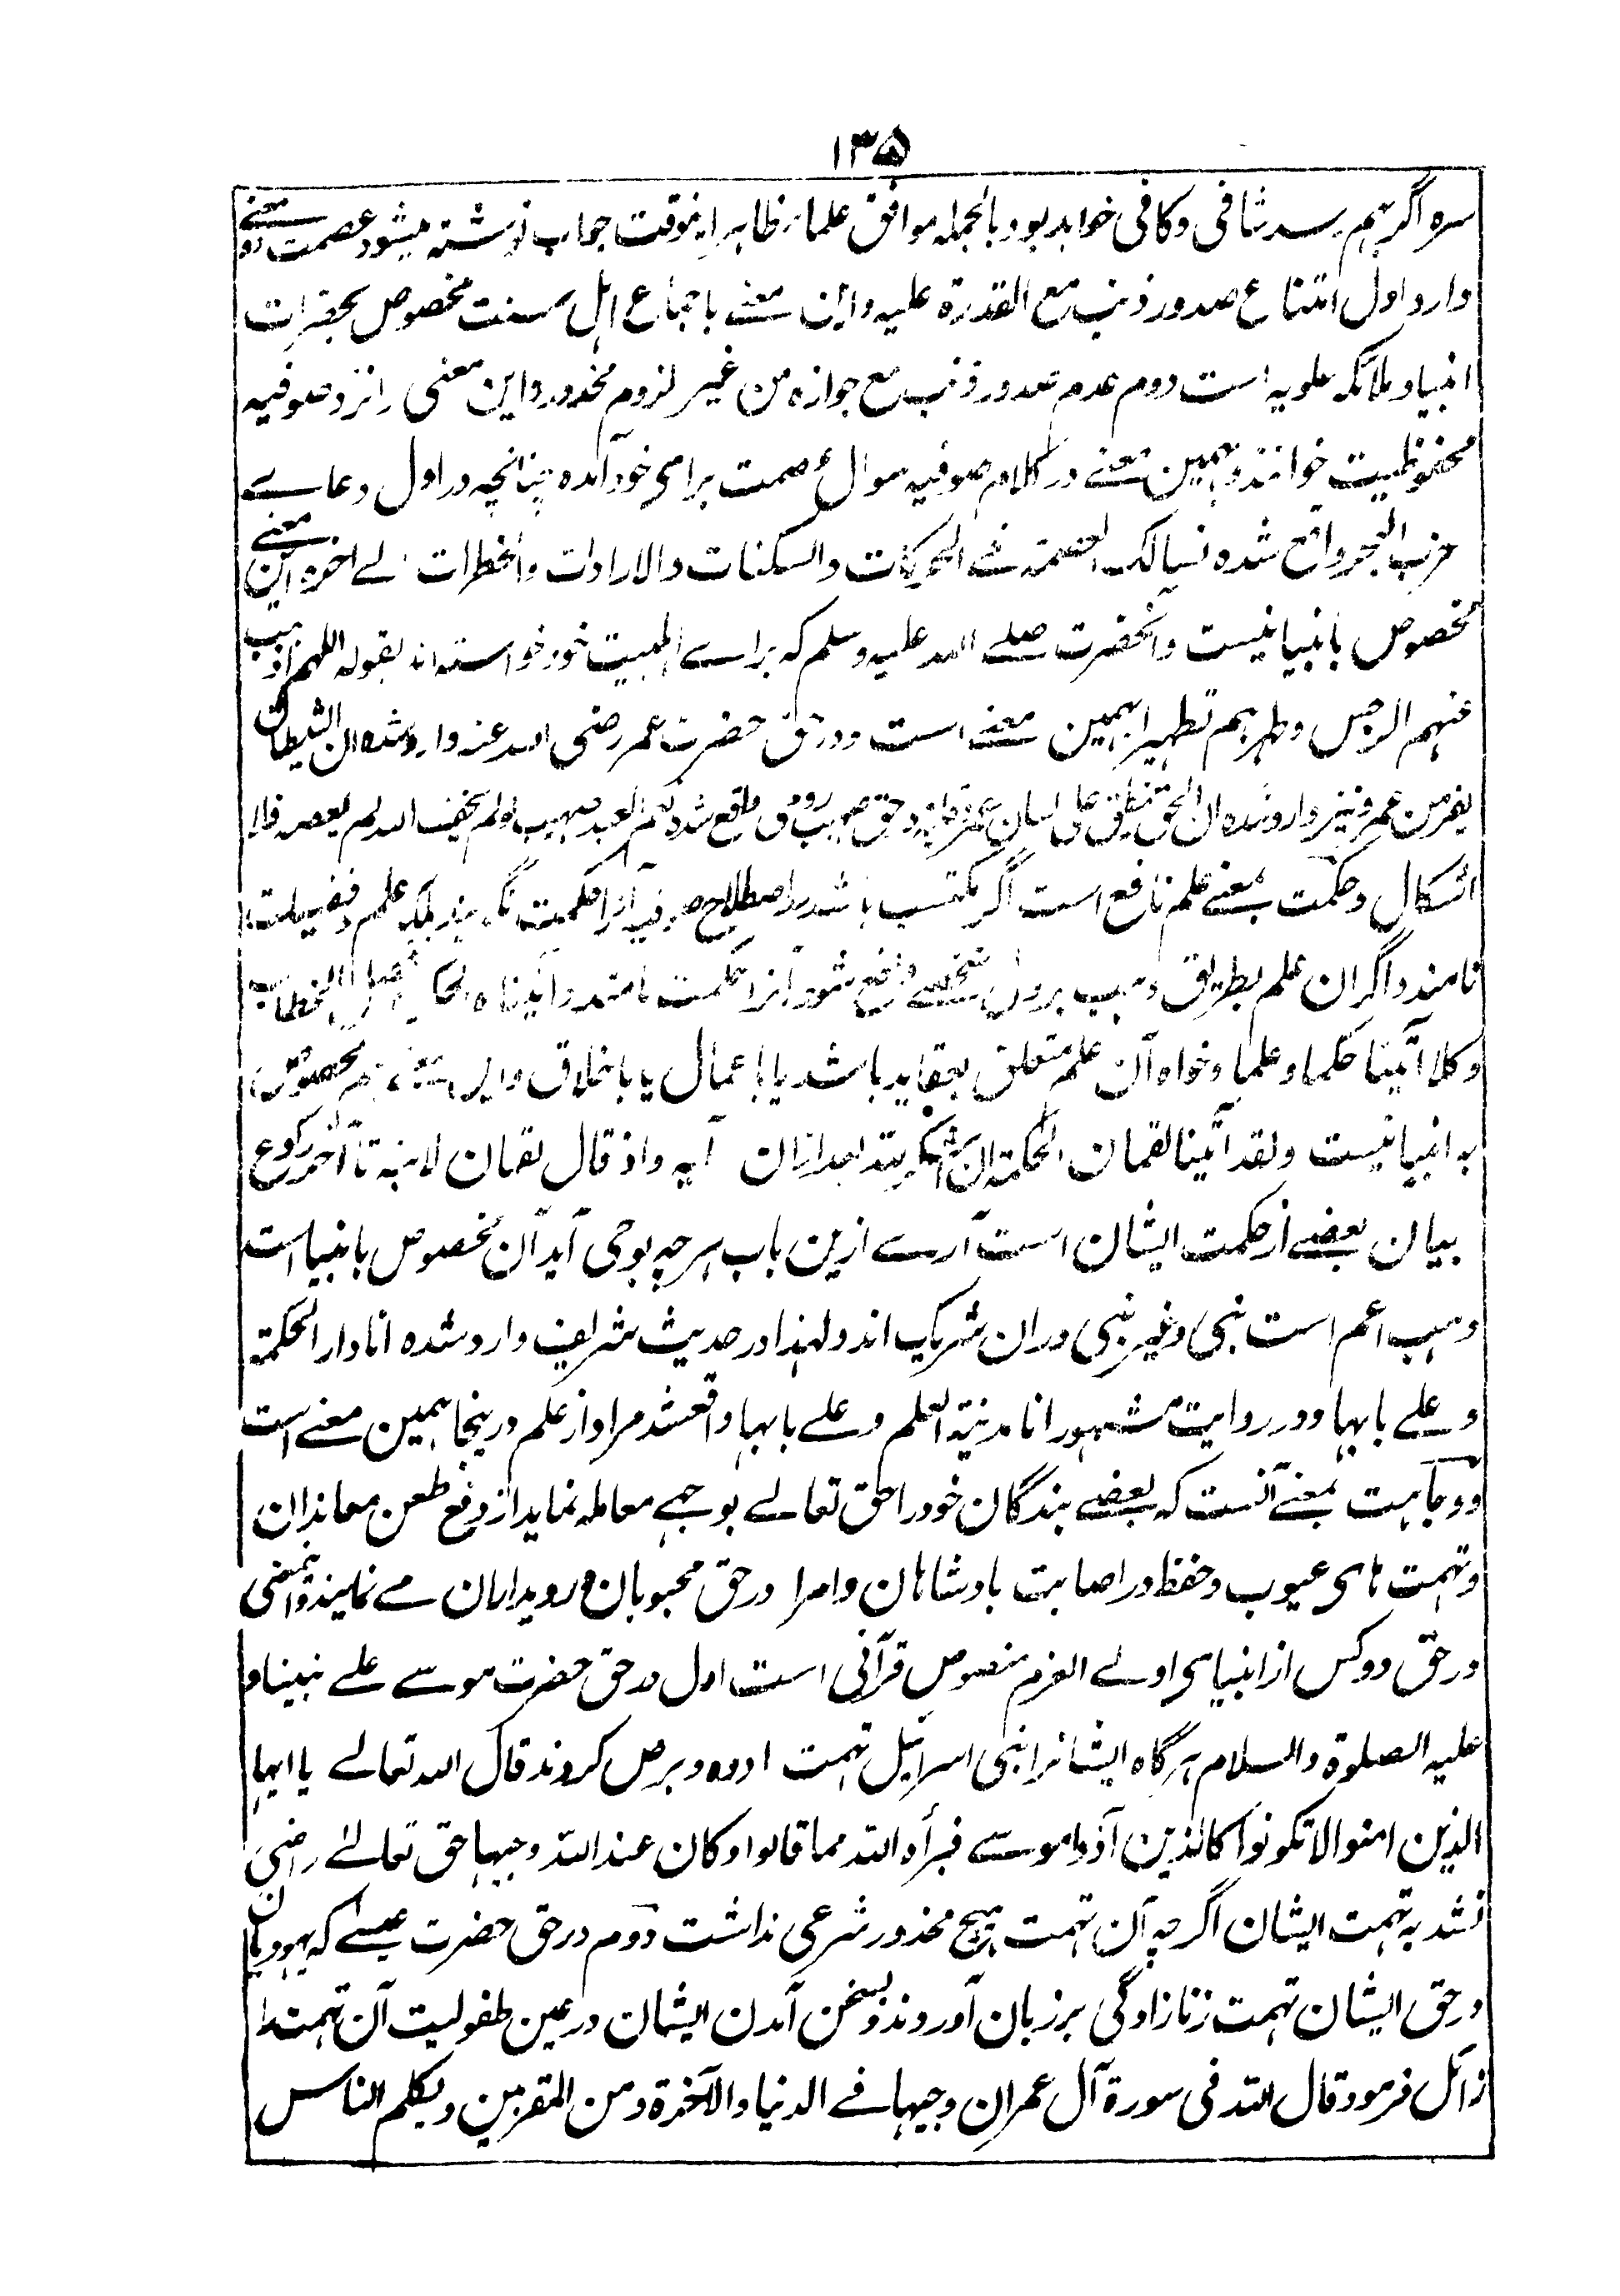 ۱۳۵
سره اگر بهم رسد شافی و کافی خواهد بود بالجمله موافق علماء ظاهر اینوقت جواب نوشته میشود عصمت دو معنے
دارد اول امتناع صدور ذنب مع القدرة علیه و این معنے باجماع اهل سنت مخصوص بحضرات
انبیا و ملائکه علویه است دوم عدم صدور ذنب مع جوازه من غیر لزوم محذور و این معنی را نزد صوفیه
محفوظیت خوانند و بهمین معنے در کلام صوفیه سوال عصمت برای خود آمده چنانچه در اول دعاے
حزب البحر واقع شده نسالک العصمة فے الحرکات والسکنات والارادات والخطرات الے اخره این معنے
مخصوص بانبیا نیست و آنحضرت صلے الله علیه وسلم که براے اهلبیت خود خواسته اند بقوله اللهم اذهب
عنهم الرجس وطهرهم تطهیرا بهمین معنے است و در حق حضرت عمر رضی الله عنه وارد شده ان الشیطان
یفر من عمر و نیز وارد شده ان الحق ینطق علی لسان عمر و در حق صهیب رومی واقع شده نعم العبد صهیب لو لم یخف الله لم یعصه فلا
اشکال و حکمت بمعنے علم نافع است اگر مکتسب باشد در اصطلاح صوفیه آنرا حکمت نگویند بلکه علم و فضیلت
نامند و اگر ان علم بطریق وهب بر دل شخصے واقع شود آنرا حکمت نامند و آتیناه الحکمة وفصل الخطاب
وکلا آتینا حکما وعلما و خواه آن علم متعلق بعقاید باشد یا باعمال یا باخلاق و این معنے هم مخصوص
به انبیا نیست ولقد آتینا لقمان الحکمة ان اشکر لله بعد ازان آیه واذ قال لقمان لابنه تا آخر رکوع
بیان بعضے از حکمت ایشان است آرے ازین باب هرچه بوحی آید آن مخصوص بانبیا است
وهب اعم است نبی و غیر نبی دران شریک اند و لهذا در حدیث شریف وارد شده انا دار الحکمة
وعلے بابها و در روایت مشهور انا مدینة العلم وعلے بابها واقعشد مراد از علم درینجا همین معنے است
و وجاهت بمعنے آنست که بعضے بندگان خود را حق تعالے بوجهے معامله نماید از دفع طعن معاندان
و تهمت های عیوب و حفظ در اصابت بادشاهان و امرا در حق محبوبان و رویداران مے نمایند و اینمعنی
در حق دو کس از انبیای اولے العزم منصوص قرآنی است اول در حق حضرت موسے علے نبینا و
علیه الصلوة والسلام هرگاه ایشانرا بنی اسرائیل تهمت ادره و برص کردند قال الله تعالے یا ایها
الذین امنوا لا تکونوا کالذین آذوا موسے فبرأه الله مما قالوا وکان عند الله وجیها حق تعالے راضی
نشد به تهمت ایشان اگرچه آن تهمت هیچ محذور شرعی نداشت دوم در حق حضرت عیسے که یهودیان
در حق ایشان تهمت زنازادگی بر زبان آوردند و بسخن آمدن ایشان در عین طفولیت آن تهمت را
زائل فرمود قال الله فی سورة آل عمران وجیها فے الدنیا والآخرة ومن المقربین ویکلم الناس